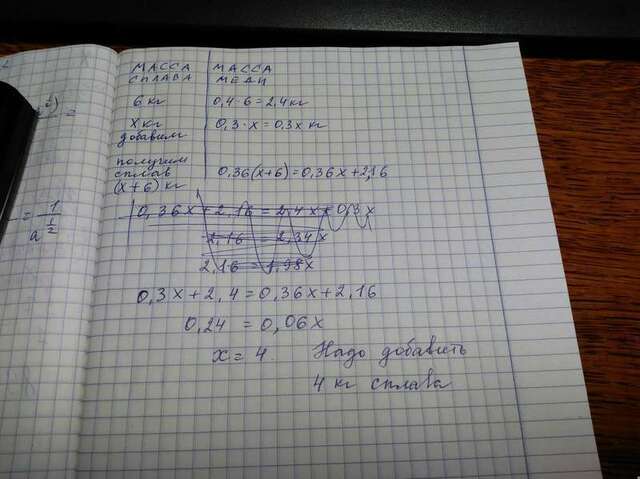 МАССА СПЛАВА | МАССА МЕДИ
6 кг | 0,4·6=2,4кг
X кг добавим | 0,3·x=0,3x кг
получим сплав (x+6) кг | 0,36(x+6)=0,36x+2,16
0,36x+2,16=2,4x+0,3x
2,16=2,34x
2,16=1,98x
0,3x+2,4=0,36x+2,16
0,24=0,06x
x=4. Надо добавить
4 кг сплава
=
= 1
a^½